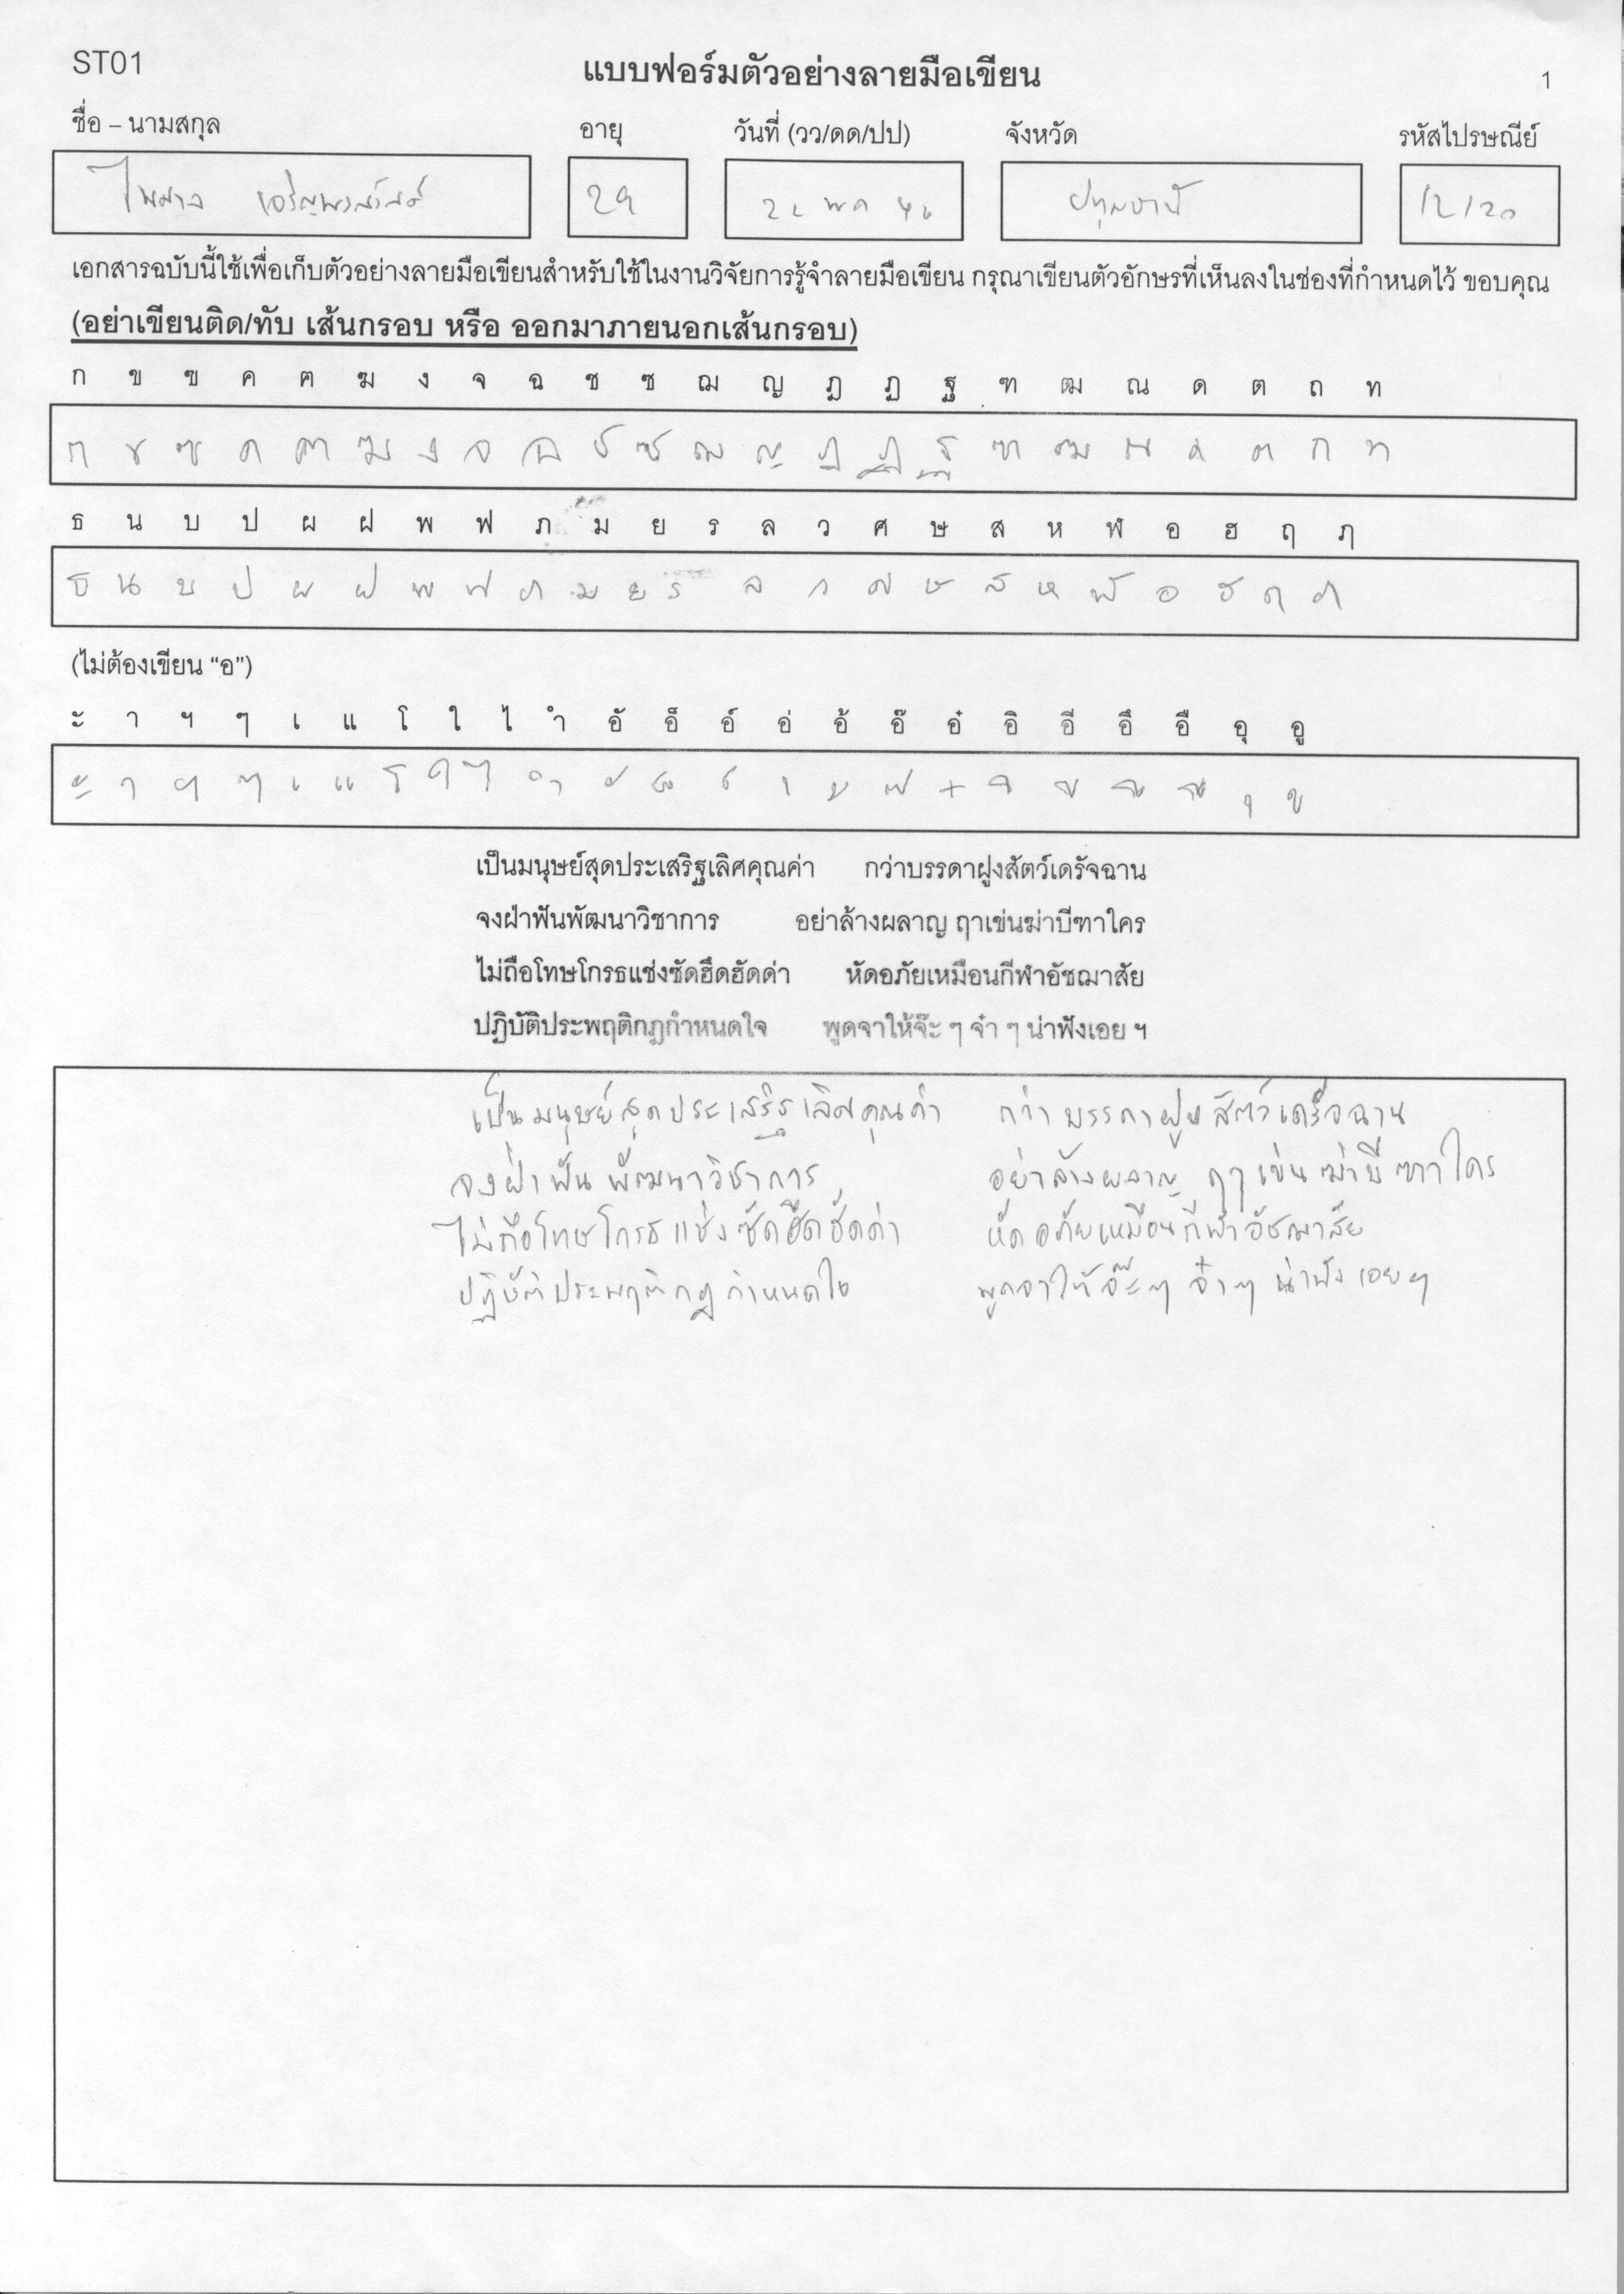 ST01
แบบฟอร์มตัวอย่างลายมือเขียน
1
ชื่อ – นามสกุล อายุ วันที่ (วว/ดด/ปป) จังหวัด รหัสไปรษณีย์
ไพศาล 29 22 พค 46 ปทุมธานี 12120
เอกสารฉบับนี้ใช้เพื่อเก็บตัวอย่างลายมือเขียนสำหรับใช้ในงานวิจัยการรู้จำลายมือเขียน กรุณาเขียนตัวอักษรที่เห็นลงในช่องที่กำหนดไว้ ขอบคุณ
(อย่าเขียนติด/ทับ เส้นกรอบ หรือ ออกมาภายนอกเส้นกรอบ)
ก ข ฃ ค ฅ ฆ ง จ ฉ ช ซ ฌ ญ ฎ ฏ ฐ ฑ ฒ ณ ด ต ถ ท
ก ข ฃ ค ฅ ฆ ง จ ฉ ช ซ ฌ ญ ฎ ฏ ฐ ฑ ฒ ณ ด ต ถ ท
ธ น บ ป ผ ฝ พ ฟ ภ ม ย ร ล ว ศ ษ ส ห ฬ อ ฮ ฤ ฦ
ธ น บ ป ผ ฝ พ ฟ ภ ม ย ร ล ว ศ ษ ส ห ฬ อ ฮ ฤ ฦ
(ไม่ต้องเขียน “อ”)
ะ า ฯ ๆ เ แ โ ใ ไ ำ อั อ็ อ์ อ่ อ้ อ๊ อ๋ อิ อี อึ อื อุ อู
ะ า ฯ ๆ เ แ โ ใ ไ ำ ั ็ ์ ่ ้ ๊ ๋ ิ ี ึ ื ุ ู
เป็นมนุษย์สุดประเสริฐเลิศคุณค่า กว่าบรรดาฝูงสัตว์เดรัจฉาน
จงฝ่าฟันพัฒนาวิชาการ อย่าล้างผลาญ ฤาเข่นฆ่าบีฑาใคร
ไม่ถือโทษโกรธแช่งซัดฮึดฮัดด่า หัดอภัยเหมือนกีฬาอัชฌาสัย
ปฏิบัติประพฤติกฎกำหนดใจ พูดจาให้จ๊ะ ๆ จ๋า ๆ น่าฟังเอย ฯ
เป็นมนุษย์สุดประเสริฐเลิศคุณค่า กว่าบรรดาฝูงสัตว์เดรัจฉาน
จงฝ่าฟันพัฒนาวิชาการ อย่าล้างผลาญ ฤาเข่นฆ่าบีฑาใคร
ไม่ถือโทษโกรธแช่งซัดฮึดฮัดด่า หัดอภัยเหมือนกีฬาอัชฌาสัย
ปฏิบัติประพฤติกฎกำหนดใจ พูดจาให้จ๊ะๆ จ๋าๆ น่าฟังเอยฯ